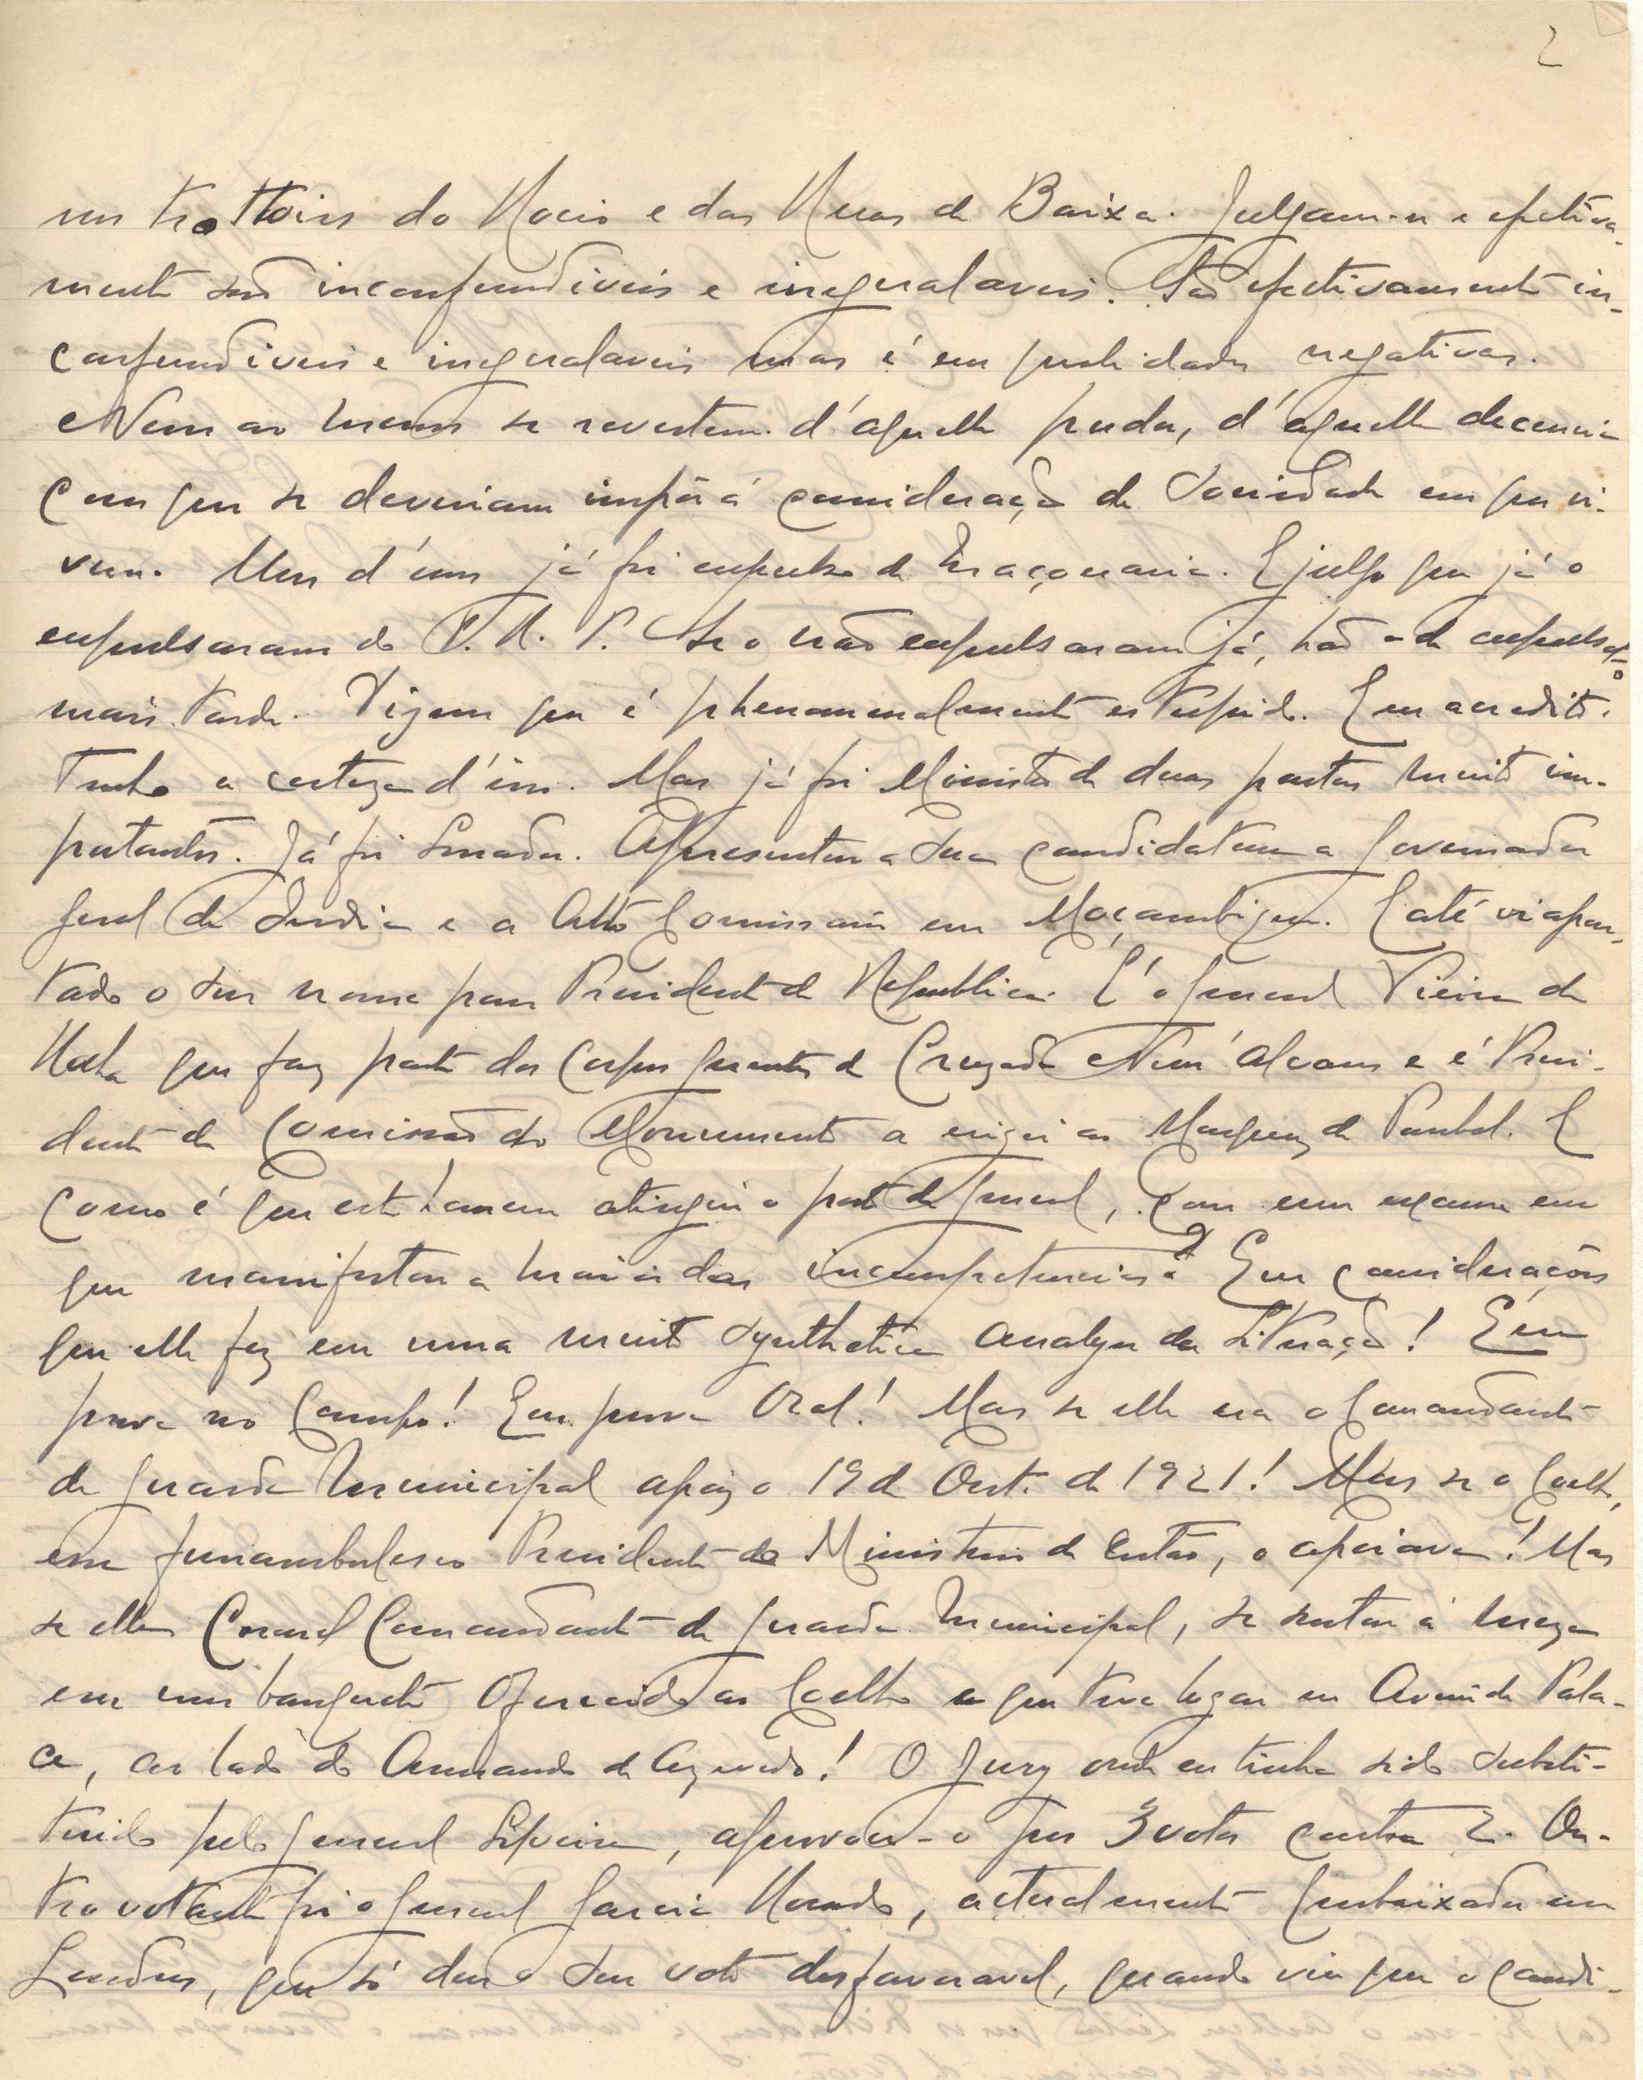 2
nos trottoirs do Rocio e das Ruas da Baixa. Julgam-se e efectiva-
mente são inconfundiveis e inegualaveis. São efectivamente in-
confundiveis e inegualaveis mas é em qualidades negativas.
Nem ao menos se revestem d'aquelle pudor, d'aquella decencia
com que se deveriam impôr á consideração da Sociedade em que vi-
vem. Um d'eles já foi expulso da Maçonaria. E julgo que já o
expulsaram do P. R. P. Se o não expulsaram já, hão-de expulsal-o
mais tarde. Dizem que é phenomenalmente estupido. E eu acredito.
Tenho a certeza d'isso. Mas já foi Ministro de duas pastas muito im-
portantes. Já foi Senador. Apresentou a sua candidatura a Governador
Geral da India e a Alto Comissario em Moçambique. E até vi apon-
tado o seu nome para Presidente da Republica. E' o general Vieira da
Rocha que faz parte dos Corpos gerentes da Cruzada Nun'Alvares e é Presi-
dente da Comissão do Monumento a erigir ao Marquez de Pombal. E
como é que este homem atingiu o posto de general, com um exame em
que manifestou a maior das incompetencias? Em considerações
que elle fez em uma muito synthetica analyse da Situação! Em
prova no Campo! Em prova Oral! Mas se elle era o Comandante
da Guarda Municipal apoz o 19 de Out. de 1921! Mas se o Coelho,
esse funambulesco Presidente do Ministerio de então, o apoiava! Mas
se elle Coronel Comandante da Guarda Municipal, se sentou á meza
em um banquete oferecido ao Coelho e que teve logar no Avenida Pala-
ce, ao lado do Armando de Azevedo! O Jury onde eu tinha sido substi-
tuido pelo general Siqueira, aprovou-o por 3 votos contra 2. Ou-
tro votante foi o general Garcia Rosado, actualmente Embaixador em
Londres, que só deu o seu voto desfavoravel, quando viu que o candi-